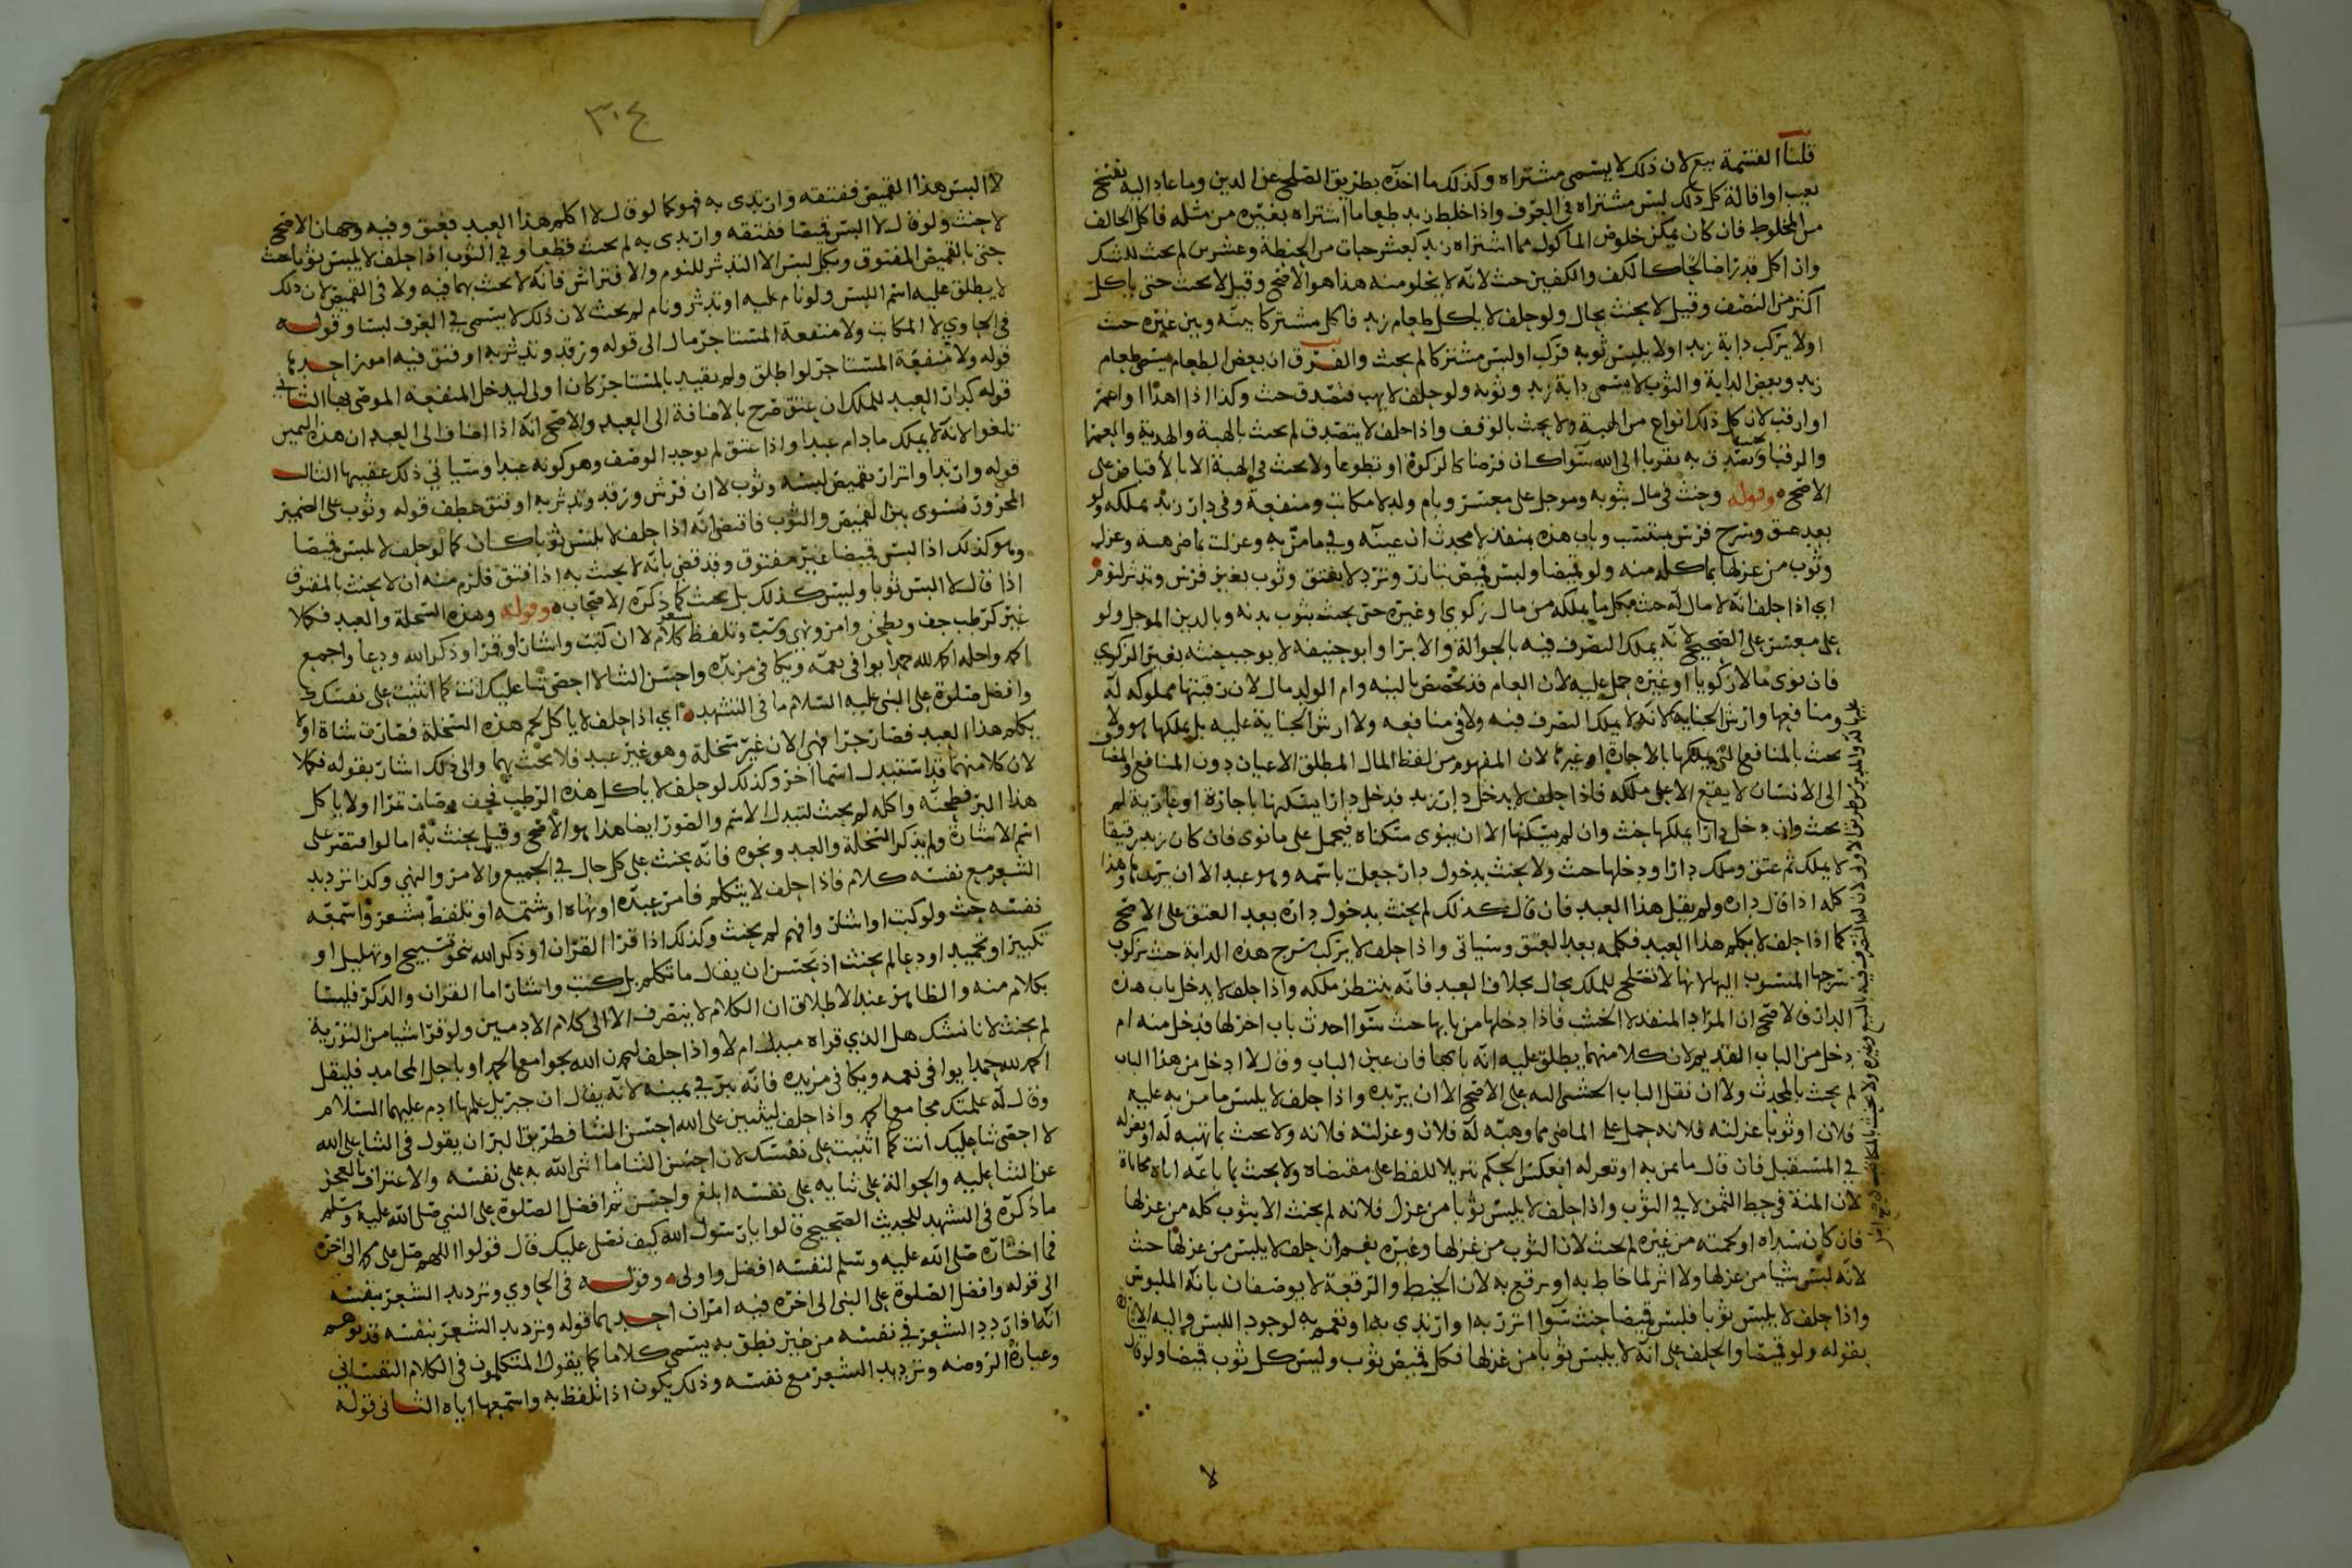 قلنا القسمة بيع لان ذلك لا يسمى مشتراه وكذلك ما اخذه بطريق الصلح عن الدين وما عاد اليه بفسخ
بعيب او اقالة كل ذلك ليس مشتراه في العرف واذا خلط زيد طعاما اشتراه بغيره من مثله فاكل الحالف
من المخلوط فان كان يمكن خلوص الماكول مما اشتراه زيد كعشر حبات من الحنطة وعشرين لم يحث للشك
وان اكل قدرا صالحا كالكف والكفين حث لانه لا يخلو منه هذا هو الاصح وقيل لا يحث حتى ياكل
اكثر من النصف وقيل لا يحنث بحال ولو حلف لا ياكل طعام زيد فاكل مشتركا بينه وبين غيره حث
او لا يركب دابة زيد او لا يلبس ثوبه فركب او لبس مشتركا لم يحث والفرق ان بعض الطعام يسمى طعام
زيد وبعض الدابة والثوب لا يسمى دابة زيد وثوبه ولو حلف لا يهب فتصدق حث وكذا اذا اهدا او اعمر
او ارقب لان كل ذلك انواع من الهبة ولا يحث بالوقف واذا حلف لا يتصدق لم يحث بالهبة والهدية والعمرا
والرقبا ويتصدق به تقربا الى الله سوا كان فرضا كالزكوة او تطوعا ولا يحث في الهبة الا بالاقباض على
الاصح وقوله وحنث في مال بثوبه وموجل على معسر وبام ولد لا مكاتب ومنفعة وفي دار زيد بملكه ولو
بعد عتق وسرج فرس ينتسب وباب هذه بمنفذ لا محدث ان عينه وفي ما من به وغزلت بماض هبة وغزل
وثوب من غزلها بما كله منه ولو قميصا ولبس قميص بتازر وتردٍ لا بفتق وثوب بغير فرش وتدثر لنوم
اي اذا حلف انه لا مال له حث بكل ما يملكه من مال زكوي او غيره حتى يحث بثوب بدنه وبالدين الموجل ولو
على معسر على الصحيح لانه يملك التصرف فيه بالحوالة والابرا وابو حنيفة لا يوجب حنثه بغير الزكوي
فان نوى مالا زكويا او غيره حمل عليه لان العام قد يخصص بالنية وام الولد مال لان رقبتها مملوكه له
ومنافعها وارش الجناية لا انه لا يملك التصرف فيه ولا في منافعه ولا ارش الجناية عليه بل يملكها هو ولا
يحث بالمنافع التي يملكها بالاجارة او غيرها لان المفهوم من لفظ المال المطلق الاعيان دون المنافع والمضاف
الى الانسان لا يقع الا على ملكه فاذا حلف لا يدخل دار زيد فدخل دارا يسكنها باجارة او عارية لم
يحث وان دخل دارا يملكها حنث وان لم يسكنها الا ان ينوي سكناه فيحمل على ما نوى فان كان زيد رقيقا
لا يملك ثم عتق وملك دارا ودخلها حث ولا يحنث بدخول دار جعلت باسمه وهو عبد الا ان يريدها وهذا
كله اذا قال داره ولم يقل هذا العبد فان قال كذلك لم يحنث بدخول داره بعد العتق على الاصح
كما اذا حلف لا يكلم هذا العبد فكلمه بعد العتق وسياتي واذا حلف لا يركب سرج هذه الدابة حث بركوب
سرجها المنسوب اليها لانها لا تصلح للملك بحال بخلاف العبد فانه ينتظر ملكه واذا حلف لا يدخل باب هذه
الدار فالاصح ان المراد المنفذ لا الخشب فاذا دخلها من بابها حث سوا احدث باب اخر لها فدخل منه ام
دخل من الباب القديم لان كلا منهما يطلق عليه انه بابها فان عين الباب وقال لا ادخل من هذا الباب
لم يحث بالمحدث ولا ان نقل الباب الخشبي اليه على الاصح الا ان يريده واذا حلف لا يلبس ما من به عليه
فلان او ثوبا غزلته فلانه حمل على الماضي مما وهبه له فلان وغزلته فلانه ولا يحث بما تهبه له او تغزله
في المستقبل فان قال ما يمن به او تغزله انعكس الحكم تنزيلا للفظ على مقتضاه ولا يحث بما باعه اياه محاباة
لان المنة في حط الثمن لا في الثوب واذا حلف لا يلبس ثوبا من غزل فلانه لم يحنث الا بثوب كله من غزلها
فان كان سداه او لحمته من غيره لم يحث لان الثوب من غزلها وغيره نعم ان حلف لا يلبس من غزلها حث
لانه لبس شيا من غزلها ولا اثر لما خاط به او رقع به لان الخيط والرقعة لا يوصفان بانه الملبوس
واذا حلف لا يلبس ثوبا فلبس قميصا حنث سوا اتزر به او ارتدي به او تعمم به لوجود اللبس واليه الاشارة
بقوله ولو قميصا والحلف على انه لا يلبس ثوبا من غزلها فكل قميص ثوب وليس كل ثوب قميصا ولو قال
لا
٣٠٤
لا البس هذا القميص ففتقه وارتدى به فهو كما لو قال لا اكلم هذا العبد فعتق وفيه وجهان الاصح
لا حنث ولو قال لا البس قميصا ففتقه وارتدى به لم يحث قطعا وفي الثوب اذا حلف لا يلبس ثوبا حث
حتى بالقميص المفتوق وبكل لبس الا التدثر للنوم والافتراش فانه لا يحث بهما فيه ولا في القميص لان ذلك
لا يطلق عليه اسم اللبس ولو نام عليه او تدثر ونام لم يحث لان ذلك لا يسمى في العرف لبسا وقوله
في الحاوي لا المكاتب ولا منفعة المستاجر مال الى قوله ورقد وتدثر به او فتق فيه امور احدها
قوله ولا منفعة المستاجر لو اطلق ولم يقيد بالمستاجر كان اولى ليدخل المنفعة الموصى بها الثاني
قوله كدار العبد للملك ان عتق صرح بالاضافة الى العبد والاصح انه اذا اضاف الى العبد ان هذه اليمين
تلغوا لانه لا يملك ما دام عبدا واذا عتق لم يوجد الوصف وهو كونه عبدا وسياتي ذلك عقيبها الثالث
قوله وارتدا واتزار بقميص لبسه وثوب لا ان فرش ورقد وتدثر به او فتق عطف قوله وثوب على الضمير
المجرور فسوى بين القميص والثوب فاقتضى انه اذا حلف لا يلبس ثوبا كان كما لو حلف لا يلبس قميصا
وهو كذلك اذا لبس قميصا غير مفتوق وقد قضى بانه لا يحث به اذا فتق فلزم منه ان لا يحنث بالمفتوق
اذا قال لا البس ثوبا وليس كذلك بل يحث كما ذكره الاصحاب وقوله وهذه السخلة والعبد فكلا
غير كرطب جف وبطحن وامر ونهي وسب وتلفظ شعر كلام لا ان كتب واشار او قرا وذكر الله ودعا واجمع
الحمد واجله الحمد لله حمدا يوافي نعمه ويكافي مزيده واحسن الثنا لا احصي ثنا عليك انت كما اثنيت على نفسك
وافضل صلوة على النبي عليه السلام ما في التشهد اي اذا حلف لا ياكل لحم هذه السخلة فصارت شاة او لا
يكلم هذا العبد فصار حرا فهي الان غير سخلة وهو غير عبد فلا يحث بهما والى ذلك اشار بقوله فكلا
لان كلا منهما قد استبدل اسما اخر وكذلك لو حلف لا ياكل هذه الرطب فجف وصارت تمرا او لا ياكل
هذا البر فطحنه واكله لم يحث لتبدل الاسم والصورة ايضا هذا هو الاصح وقيل يحنث به اما لو اقتصر على
اسم الاشارة ولم يذكر السخلة والعبد ونحوه فانه يحنث على كل حال في الجميع والامر والنهي وكذا ترديد
الشعر مع نفسه كلام فاذا حلف لا يتكلم فامر عبده او نهاه او شتمه او تلفظ بشعر واسمعه
نفسه حث ولو كتب او اشار وافهم لم يحنث وكذلك اذا قرا القران او ذكر الله بنحو تسبيح او تهليل او
تكبير او تحميد او دعا لم يحنث اذ يحسن ان يقال ما تكلم بل كتب واشار اما القران والذكر فليسا
بكلام منه والظاهر عند الاطلاق ان الكلام لا ينصرف الا الى كلام الادميين ولو قرا شيا من التورية
لم يحنث لانا نشك هل الذي قراه مبدل ام لا واذا حلف ليحمدن الله بجوامع الحمد او باجل المحامد فليقل
الحمد لله حمدا يوافي نعمه ويكافي مزيده فانه يبر في يمينه لانه يقال ان جبريل علمها ادم عليهما السلام
وقال له علمتك مجامع الحمد واذا حلف ليثنين على الله احسن الثنا فطريق البر ان يقول في الثنا على الله
لا احصي ثنا عليك انت كما اثنيت على نفسك لان احسن الثنا ما اثنى الله به على نفسه والاعتراف بالعجز
عن الثنا عليه والحوالة على ثنايه على نفسه ابلغ واحسن ثم افضل الصلوة على النبي صلى الله عليه وسلم
ما ذكره في التشهد للحديث الصحيح قالوا يا رسول الله كيف نصل عليك قال قولوا اللهم صل على محمد الى اخره
فما اختاره صلى الله عليه وسلم لنفسه افضل واولى وقوله في الحاوي وترديد الشعر بنفسه
الى قوله وافضل الصلوة على النبي الى اخره فيه امران احدهما قوله وترديد الشعر بنفسه قد يوهم
انه اذا ردد الشعر في نفسه من غير نطق به يسمى كلاما كما يقول المتكلمون في الكلام النفساني
وعبارة الروضه وترديد الشعر مع نفسه وذلك يكون اذا تلفظ به واسمعها اياه الثاني قوله